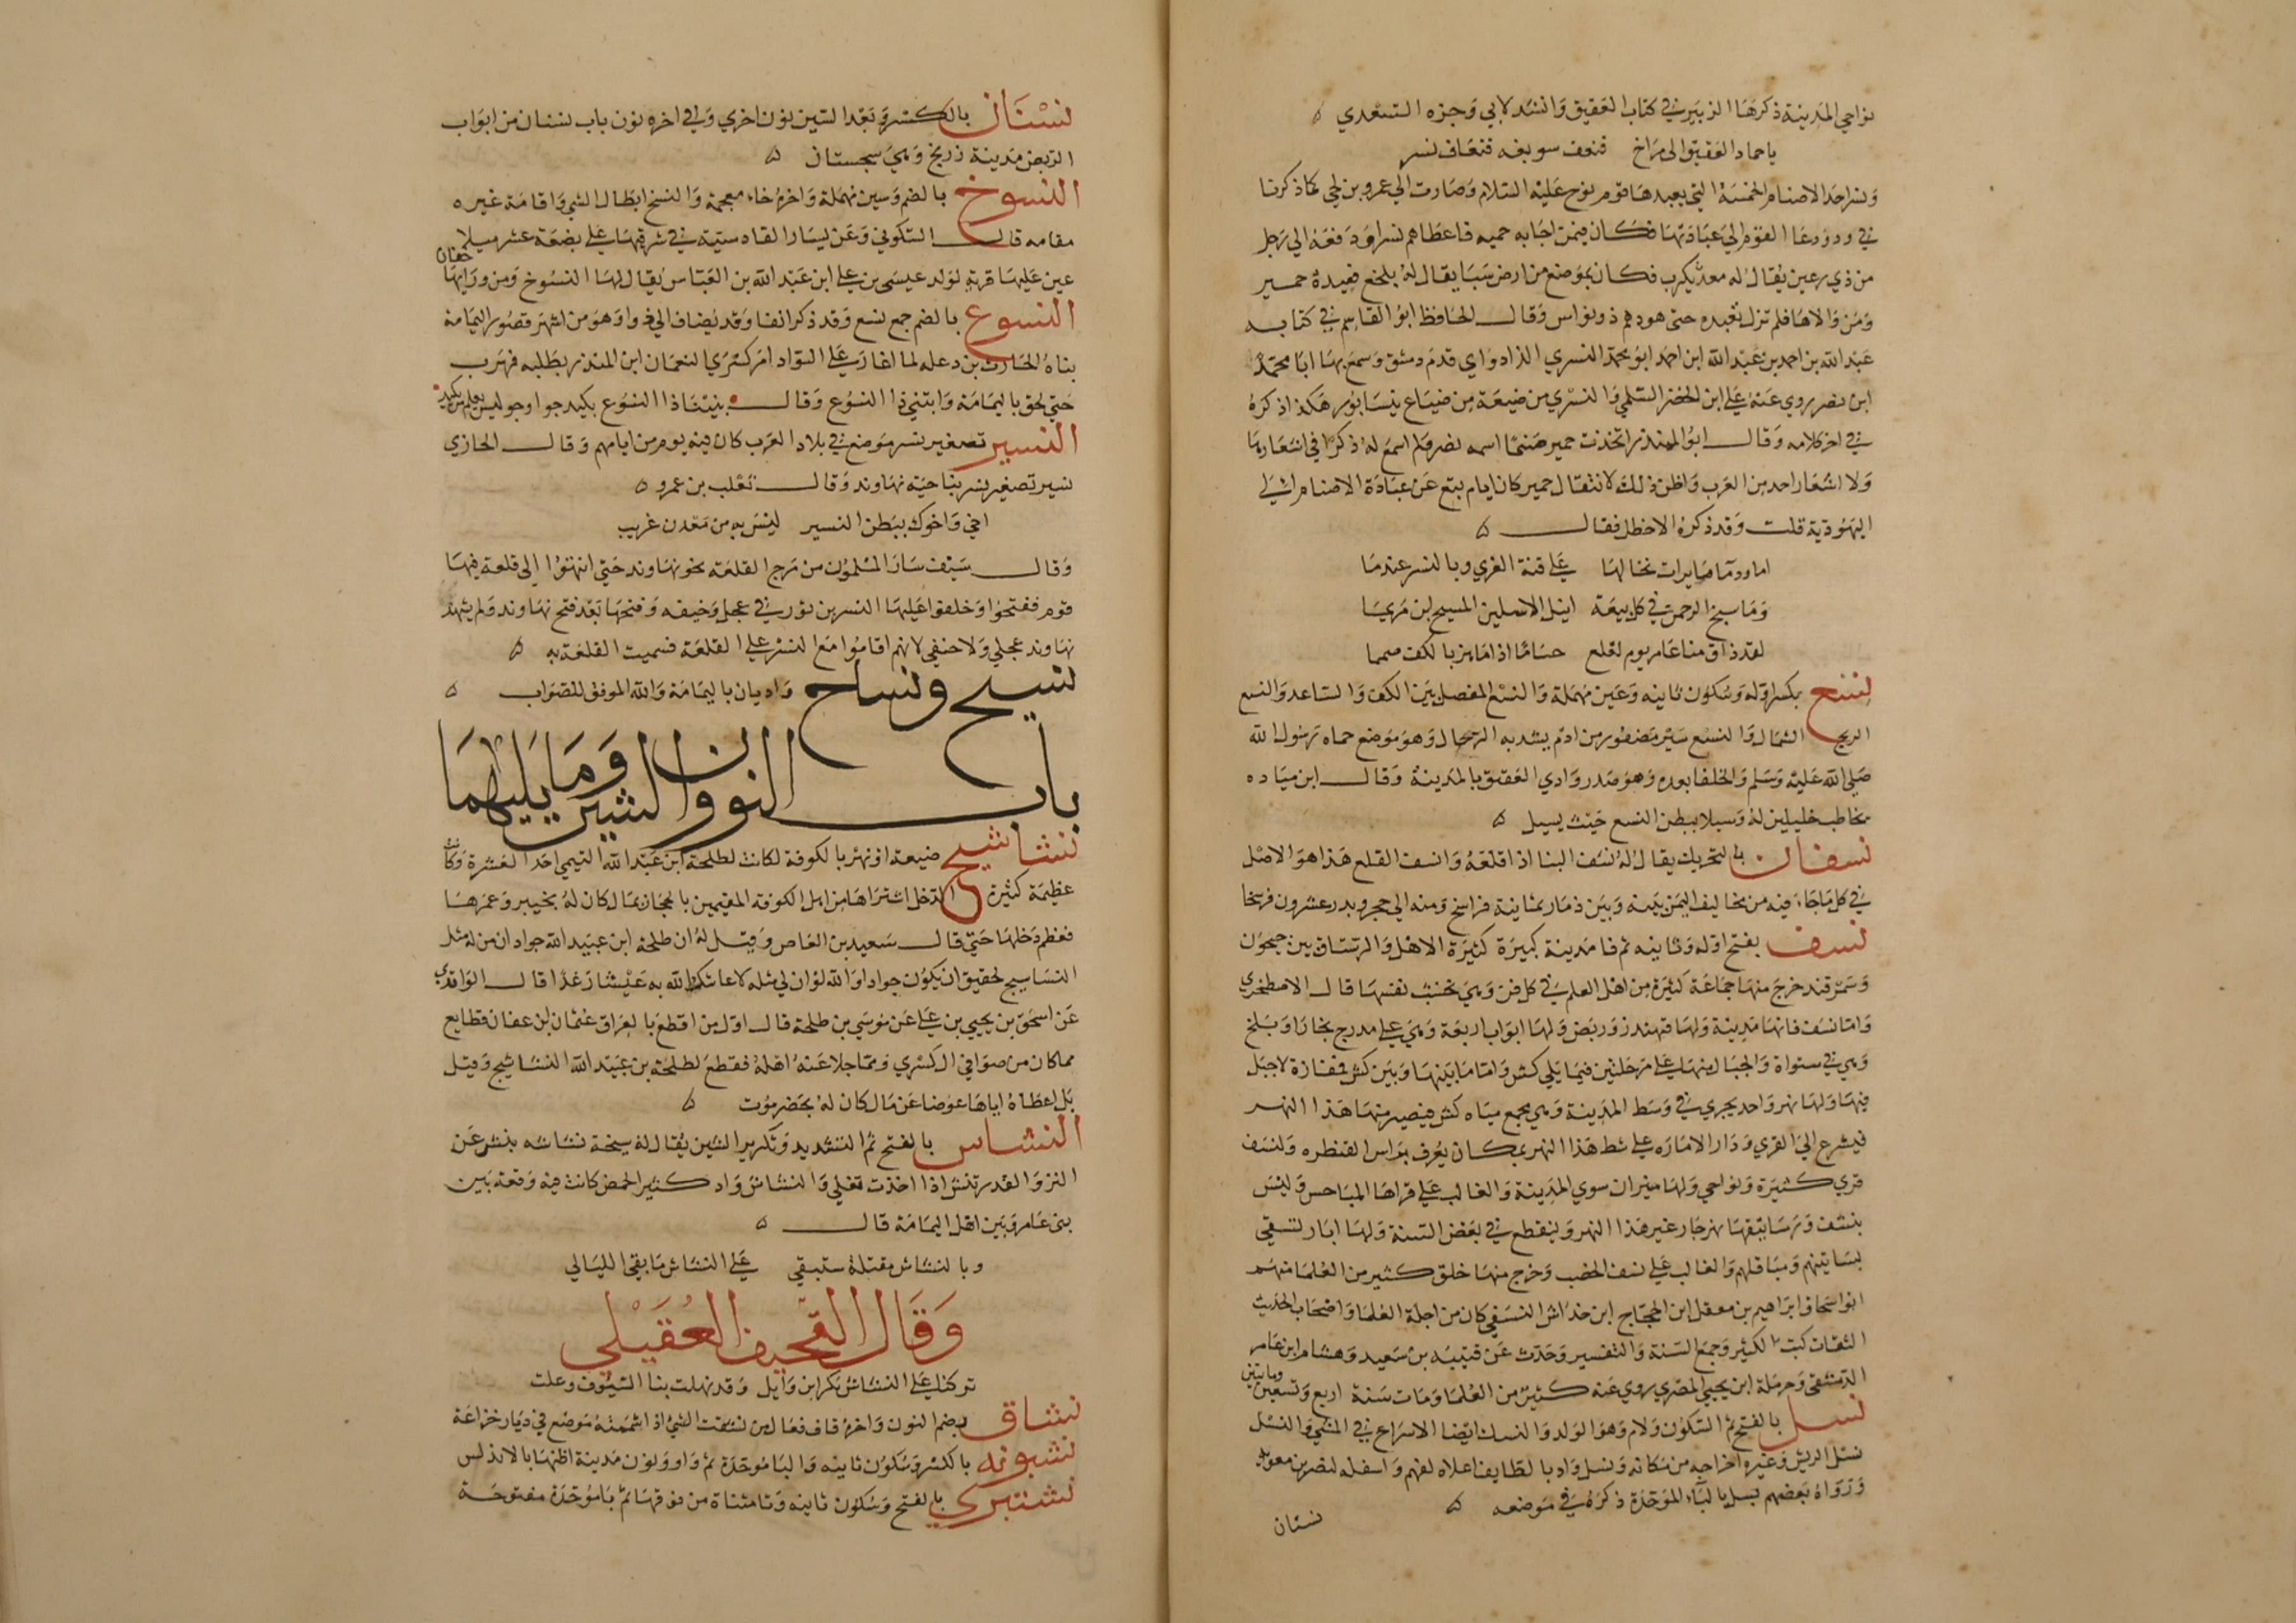 نواحي المدينة ذكرها الزبير في كتاب العقيق وانشد لابي وجزه السعدي ه
باجماد العقيق الى مراخ فنعف سويقه فنعاف نسر
ونسر احد الاصنام الخمسة التي يعبدها قوم نوح عليه السلام وصارت الي عمرو بن لحي كما ذكرنا
في ود ودعا القوم الي عبادتها فكان فيمن اجابه حمير فاعطاهم نسرا ودفعه الي رجل
من ذي رعين يقال له معديكرب فكان بموضع من ارض سبا يقال له بلخع فعبدة حمير
ومن والاها فلم تزل تعبده حتى هودهم ذو نواس وقال الحافظ ابو القاسم في كتابه
عبد الله بن احمد بن عبد الله ابن احمد ابو محمد النسري الداداواي قدم دمشق وسمع بها ابا محمد
ابن نصر روي عنه علي ابن الخضر السلمي والنسري من ضيعة من ضياع نيسابور هكذا ذكره
في اخر كلامه وقال ابو المنذر اتخذت حمير صنما اسمه نسر ولم اسمع له ذكرا في اشعارها
ولا اشعار احد من العرب واظن ذلك لانتقال حمير كان ايام تبع عن عبادة الاصنام الى
اليهودية قلت وقد ذكره الاخطل فقال ه
اما ودما مايرات تخالها علي قنة العزي وبالنسر عندما
وما سبح الرحمن في كل بيعة ابيل الابيلين المسيح بن مريما
لقد ذاق منا عامر يوم لعلع حساما اذا ما هز بالكف صمما
نسع بكسر اوله وسكون ثانيه وعين مهملة والنسع المفصل بين الكف والساعد والنسع
الريح الشمال والنسع سير مضفور من ادم يشد به الرحال وهو موضع حماه رسول الله
صلى الله عليه وسلم والخلفا بعده وهو صدر وادي العقيق بالمدينة وقال ابن مياده
يخاطب خليلين له وسيلا ببطن النسع حيث يسيل ه
نسفان بالتحريك يقال له نسف البنا اذا قلعه وانسف القلع هذا هو الاصل
في كل ما جاء فيه من مخاليف اليمن بينه وبين ذمار ثمانية فراسخ ومنه الي حجر وبدر عشرون فرسخا
نسف بفتح اوله وثانيه ثم فا مدينة كبيرة كثيرة الاهل والرستاق بين جيحون
وسمرقند خرج منها جماعة كثيرة من اهل العلم في كل فن وهي نخشب نفسها قال الاصطخري
واما نسف فانها مدينة ولها قهندز وربض ولها ابواب اربعة وهي علي مدرج بخارا وبلخ
وهي في ستواة والجبال منها علي مرحلتين فيما يلي كش واما ما بينها وبين كش ففازة لا جبل
فيها ولها نهر واحد يجري في وسط المدينة وهي مجمع مياه كش فيصير منها هذا النهر
فيشرع الي القري ودار الاماره علي شط هذا النهر بمكان يعرف براس القنطره ولنسف
قري كثيرة ونواحي ولها منبران سوي المدينة والغالب علي قراها المباخس وليس
بنسف ورساتيقها نهر جار غير هذا النهر وينقطع في بعض السنة ولها ابار تسقي
بساتينهم ومباقلهم والغالب علي نسف الخصب وخرج منها خلق كثير من العلما منهم
ابو اسحاق ابراهيم بن معقل ابن الحجاج ابن خداش النسفي كان من اجلة العلما واصحاب الحديث
الثقات كتب الكثير وجمع السنة والتفسير وحدث عن قتيبه بن سعيد وهشام ابن عامر
الدمشقي وحرملة ابن يحيي المصري روي عنه كثير من العلما ومات سنة اربع وتسعين ومايتين
نسل بالفتح ثم السكون ولام وهو الولد والنسل ايضا الاسراع في المشي والنسل
نسل الريش وغيره اخراجه من مكانه ونسل واد بالطايف اعلاه لفهم واسفله لنصر بن معوية
ورواه بعضهم بسل بالباء الموحدة ذكره في موضعه ه
نسنان
نسنان بالكسر وبعد السين نون اخري وفي اخره نون باب نسنان من ابواب
الربض مدينة زرنج وهي سجستان ه
النسوخ بالضم وسين مهملة واخره خاء معجمة والنسخ ابطال الشي واقامة غيره
مقامه قال السكوني وعن يسار القادسية في شرقيها علي بضعة عشر ميلا
عين عليها قرية لولد عيسى بن علي ابن عبد الله بن العباس يقال لها النسوخ ومن ورايها خفان
النسوع بالضم جمع نسع وقد ذكر انفا وقد يضاف الي ذو وهو من اشهر قصور اليمامة
بناه الحارث بن وعله لما اغار علي السواد امر كسري النعمان ابن المنذر بطلبه فهرب
حتي لحق باليمامة وابتني ذا النسوع وقال بنينا ذا النسوع بكيد جوا وجو ليس يعلم من يكيد
النسير تصغير نسر موضع في بلاد العرب كان فيه يوم من ايامهم وقال الحازي
نسير تصغير نسر بناحية نهاوند وقال ثعلب بن عمرو ه
اخي واخوك ببطن النسير ليس به من معدن غريب
وقال سيف سار المسلمون من مرج القلعة نحو نهاوند حتي انتهوا الى قلعة فيها
قوم ففتحوا وخلفوا عليها النسير بن ثور في عجل وحنيفه وفتحها بعد فتح نهاوند ولم يشهد
نهاوند عجلي ولا حنفي لانهم اقاموا مع النسر علي القلعة فسميت القلعة به ه
نسيح ونساح واديان باليمامة والله الموفق للصواب ه
باب النون والشين وما يليهما
نشاشيج ضيعة او نهر بالكوفة كانت لطلحة ابن عبد الله التيمي احد العشرة وكانت
عظيمة كثيرة الدخل اشتراها من اهل الكوفة المقيمين بالحجاز بمال كان له بخيبر وعمرها
فعظم دخلها حتي قال سعيد بن العاص وقيل له ان طلحة ابن عبيد الله جواد ان من له مثل
النشاسيج لحقيق ان يكون جوادا والله لو ان لي مثله لاعاشكم الله به عيشا رغدا قال الواقدي
عن اسحق بن يحيي بن علي عن موسي بن طلحة قال اول من اقطع بالعراق عثمان بن عفان قطايع
مما كان من صوافي ال كسري ومما جلا عنه اهله فقطع لطلحة بن عبيد الله النشاشيج وقيل
بل اعطاه اياها عوضا عن مال كان له بحضرموت ه
النشاش بالفتح ثم التشديد وتكرير الشين يقال له سبخة نشاشه ينش عن
النز والقدر تنش اذا اخذت تغلي والنشاش واد كثير الحمض كانت فيه وقعة بين
بني عامر وبين اهل اليمامة قال ه
وبالنشاش مقتلة ستبقي علي النشاش ما بقي الليالي
وقال القحيف العقيلي
تركنا علي النشاش بكر ابن وايل وقد نهلت بنا السيوف وعلت
نشاق بضم النون واخره قاف فعال من نشقت الشي اذا شممته موضع في ديار خزاعة
نشبونه بالكسر وسكون ثانيه والبا موحدة ثم واو ونون مدينة اظنها بالاندلس
نشتبري بالفتح وسكون ثانيه وتا مثناة من فوقها ثم با موحدة مفتوحة